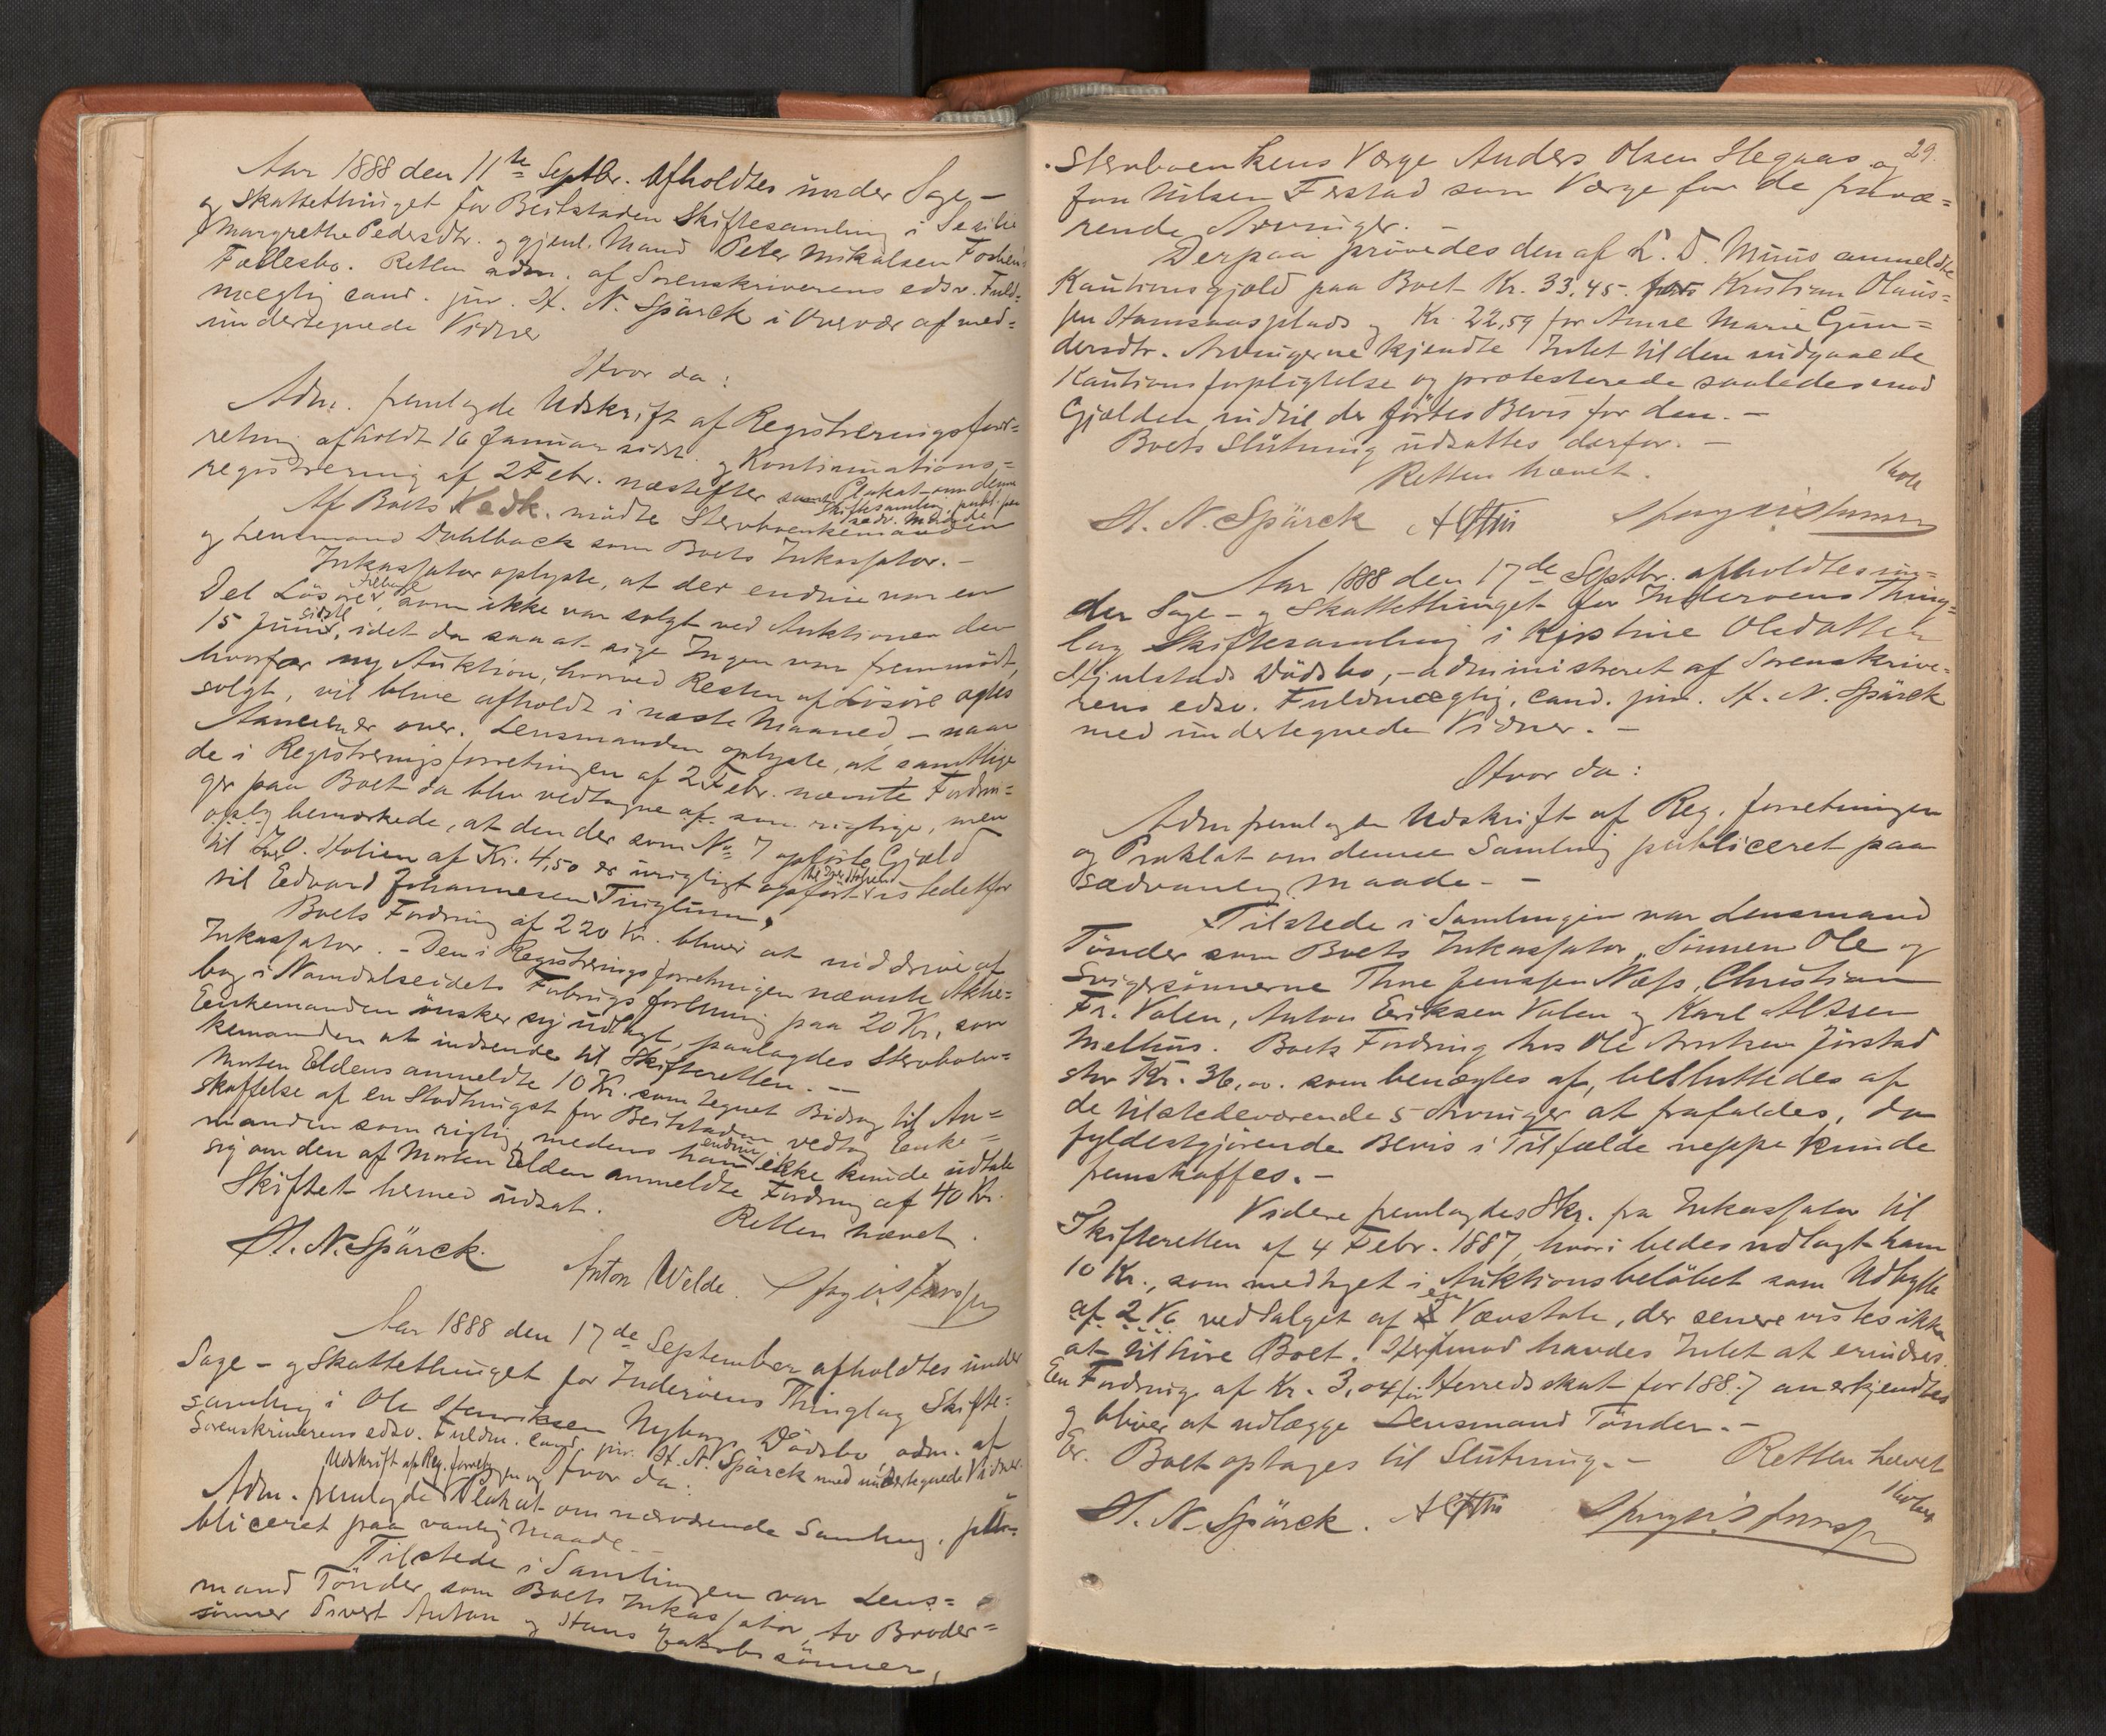 Aar 1888 den 11te Septbr. afholdtes under Sage-
og Skattethinget for Beitstaden Skiftesamling i Sesilie
Margrethe Pedersdtr. og gjenl. Mand Peter Mikalsen
Fællesbo. Retten adm. af Sorenskriverens edsv. Fuld-
mægtig cand. jur. H. N. Spärck i Overvær af med-
undertegnede Vidner
Hvor da:
Adm. fremlagde Udskrift af Registreringsforr-
retning afholdt 16 Januar sidstl. og Kontinuations-
registrering af 2 Febr. næstefter samt Plakat om denne
Skiftesamling, publ. paa
sædv. Maade.
Af Boets Vedk. mødte Stervboenkemanden
og Lensmand Dahlback som Boets Inkassator. -
Inkassator oplyste, at der endnu var en
Del Løsøre tilbage, som ikke var solgt ved Auktionen den
15 Juni sidstl, idet der saa at sige Ingen var fremmødt,
hvorfor ny Auktion, hvorved Resten af Løsøre agtes
solgt, vil blive afholdt i næste Maaned, - naar
Aannen er over. Lensmanden oplyste, at samtlige
de i Registreringsforretningen af 2 Febr. nævnte Fordrin-
ger paa Boet da blev vedtagne af som rigtige, men
bemærkede, at den der som No 7 opførte Gjæld
til Holien af Kr. 4,50 er urigtigt opført istedetfor
til Edvard Johannesen
Boets Fordring af 220 Kr. bliver at inddrive af
Inkassator. - Den i Registreringsforretningen nævnte Aktie-
bog i Namdalseidets Forbrugsforening paa 20 Kr., som
Enkemanden ønsker sig udlagt, paalagdes Stervboen-
kemanden at indsende til Skifteretten. -
Morten Eldens anmeldte 10 Kr. som tegnet Bidrag til An-
skaffelse af en Stodhingst for Beitstaden vedtog Enke-
manden som rigtig, medens han endnu ikke kunde udtale
sig om den af Morten Elden anmeldte Fordring af 40 Kr.
Skiftet hermed udsat.
Retten hævet.
H. N. Spärck.
Anton Welde.
Aar 1888 den 17de September afholdtes under
Sage- og Skattethinget for Inderøens Thinglag Skifte-
samling i Ole Henriksen Nyborgs Dødsbo, adm. af
Sorenskriverens edsv. Fuldm. cand. jur. H. N. Spärck med undertegnede Vidner.
Hvor da:
Udskrift af Reg. forretngen og
Adm. fremlagde Plakat om nærværende Samling, pub-
bliceret paa vanlig Maade. -
Tilstede i Samlingen var Lens-
mand Tønder som Boets Inkassator, to Broder-
sønner Sivert Anton og Hans Jakobssønner,
29.
Stervboenkens Værge Anders Olsen Hegaas og
Jon Nilsen Ferstad som Værge for de fravæ-
rende Arvinger. -
Derpaa prøvedes den af L. D. Muus anmeldte
Kautionsgjæld paa Boet Kr. 33,45 for Kristian Olaus-
sen Hamsaasplads og Kr. 22,59 for Anne Marie Gun-
dersdtr. Arvingerne kjendte Intet til den indgaaede
Kautionsforpligtelse og protesterede saaledes mod
Gjælden indtil der førtes Bevis for den. -
Boets Slutning udsattes derfor. -
Retten hævet.
H. N. Spärck
Aar 1888 den 17de Septbr. afholdtes un-
der Sage- og Skattethinget for Inderøens Thing-
lag Skiftesamling i Kjerstine Olsdatter
Hjulstads Dødsbo, - administreret af Sorenskrive-
rens edsv. Fuldmægtig, cand. jur. H. N. Spärck
med undertegnede Vidner. -
Hvor da:
Adm fremlagde Udskrift af Reg. forretningen
og Proklat om denne Samling publiceret paa
sædvanlig Maade. -
Tilstede i Samlingen var Lensmand
Tønder som Boets Inkassator, Sønnen Ole og
Svigersønnerne Thore Jenssen Næss, Christian
Fr. Valen, Anton Eriksen Valen og Karl Altsen
Melhus. Boets Fordring hos Ole Jørstad
stor Kr. 36,00. som benægtes af, besluttedes af
de tilstedeværende 5 Arvinger at frafaldes, da
fyldestgjørende Bevis i Tilfælde neppe kunde
fremskaffes. -
Videre fremlagdes Skr. fra Inkassator til
Skifteretten af 4 Febr. 1887, hvori bedes udlagt ham
10 Kr., som medtaget i Auktionsbeløbet som Udbytte
af 2 No ved Salget af en Vævstole, der senere vistes ikke
at tilhøre Boet. Herimod havdes Intet at erindres.
En Fordring af Kr. 3,04 for Herredsskat for 1887 anerkjendtes
og bliver at udlægge Lensmand Tønder. -
Boet optages til Slutning. -
Retten hævet
H. N. Spärck.